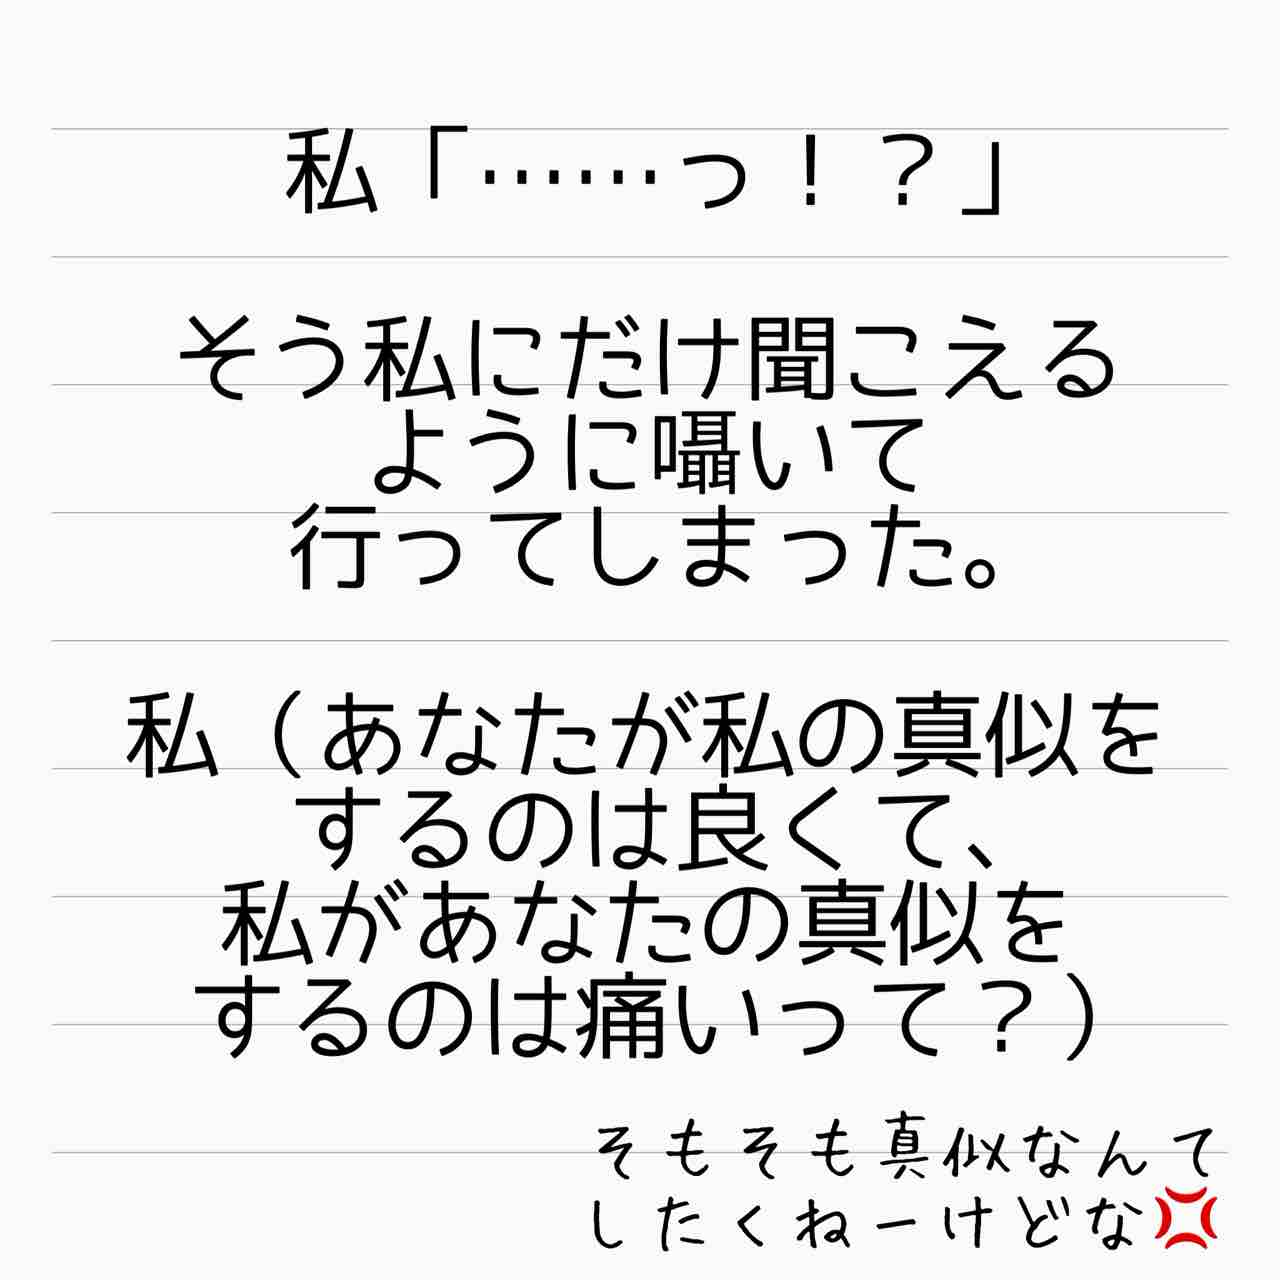 私「……っ！？」
そう私にだけ聞こえる
ように囁いて
行ってしまった。
私（あなたが私の真似を
するのは良くて、
私があなたの真似を
するのは痛いって？）
そもそも真似なんて
したくねーけどな💢